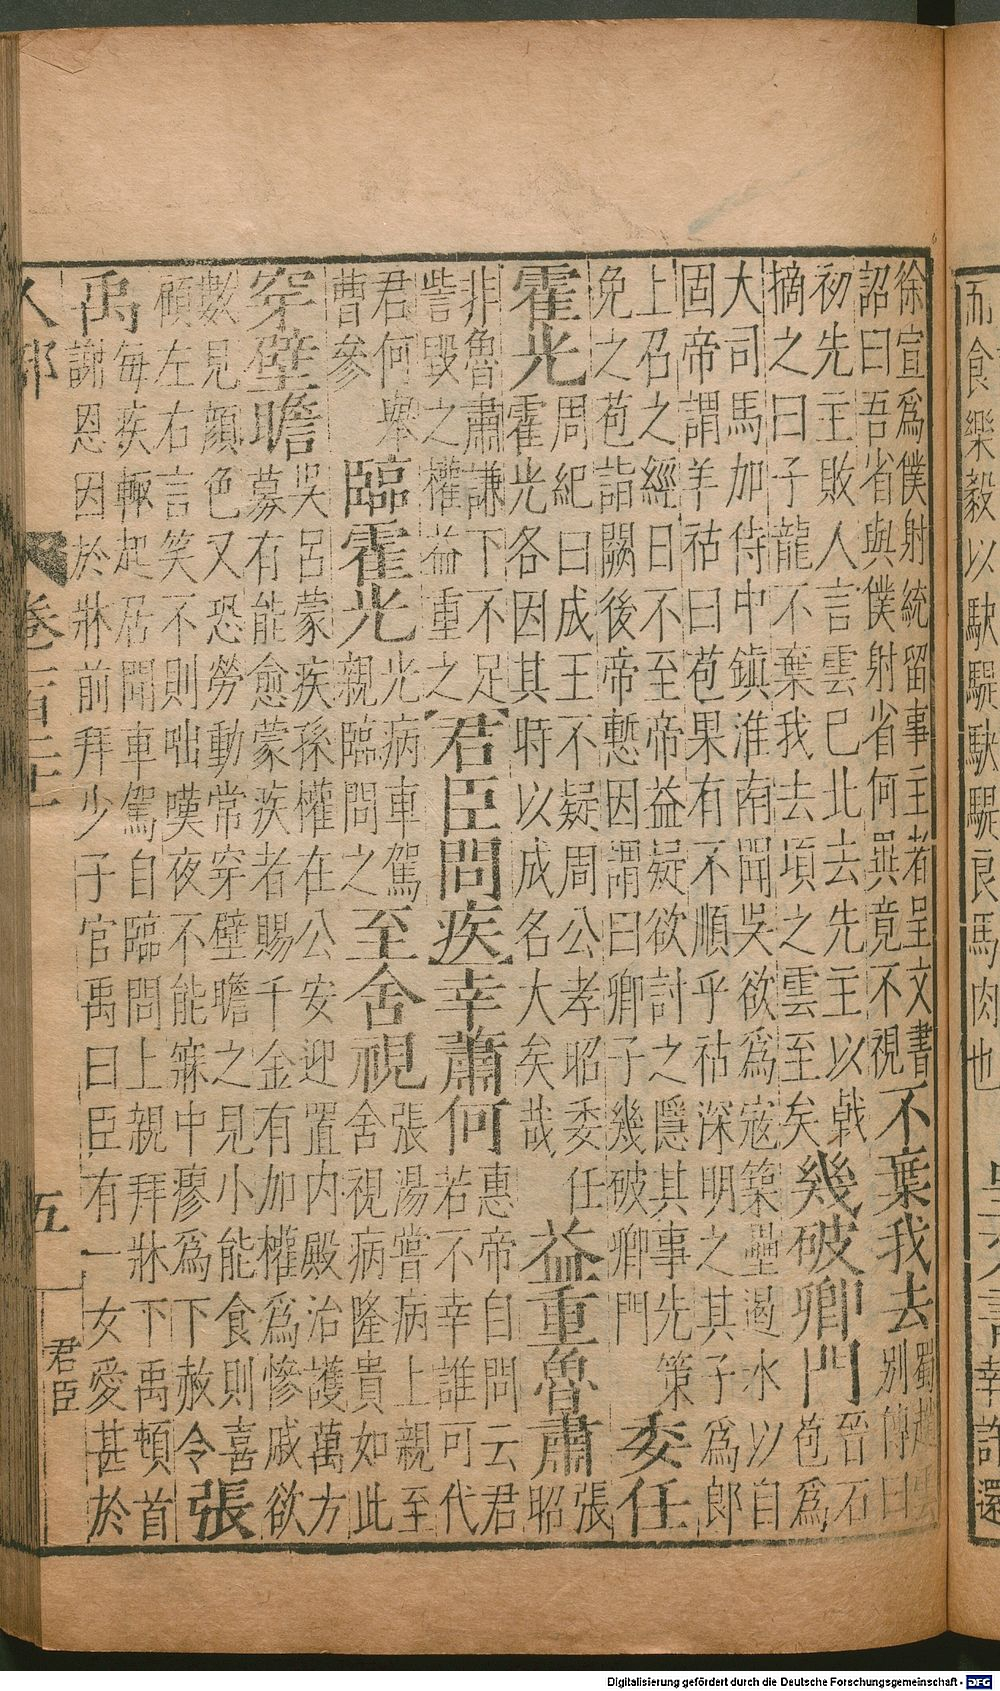 而食樂毅以駃騠駃騠良馬肉也
幸許還
徐宣爲僕射統留事主者呈文書
詔曰吾省與僕射省何異竟不視
不棄我去
蜀趙雲
別傳曰
初先主敗人言雲已北去先主以戟
摘之曰子龍不棄我去項之雲至矣
幾破卿門
晉石
苞爲
大司馬加侍中鎮淮南聞吳欲爲寇築壘遏水以自
固帝謂羊祜曰苞果有不順乎祜深明之其子爲郎
上召之經日不至帝益疑欲討之隱其事先策
免之苞詣闕後帝慙因謂曰卿子幾破卿門
委任
霍光
周紀曰成王不疑周公孝昭委任
霍光各因其時以成名大矣哉
益重魯肅
張
昭
非魯肅謙下不足
訾毀之權益重之
君臣問疾
幸蕭何
惠帝自問云君
若不幸誰可代
君何舉
曹參
臨霍光
光病車駕
親臨問之
至舍視
張湯嘗病上親至
舍視病隆貴如此
穿壁瞻
吳呂蒙疾孫權在公安迎置內殿治護萬方
募有能愈蒙疾者賜千金有加權爲慘戚欲
數見顏色又恐勞動常穿壁瞻之見小能食則喜
顧左右言笑不則咄嘆夜不能寐中瘳爲下赦令
張
禹
每疾輙起居聞車駕自臨問上親拜牀下禹頓首
謝恩因於牀前拜少子官禹曰臣有一女愛甚於
人部
卷
五
君臣
Digitalisierung gefördert durch die Deutsche Forschungsgemeinschaft - DFG